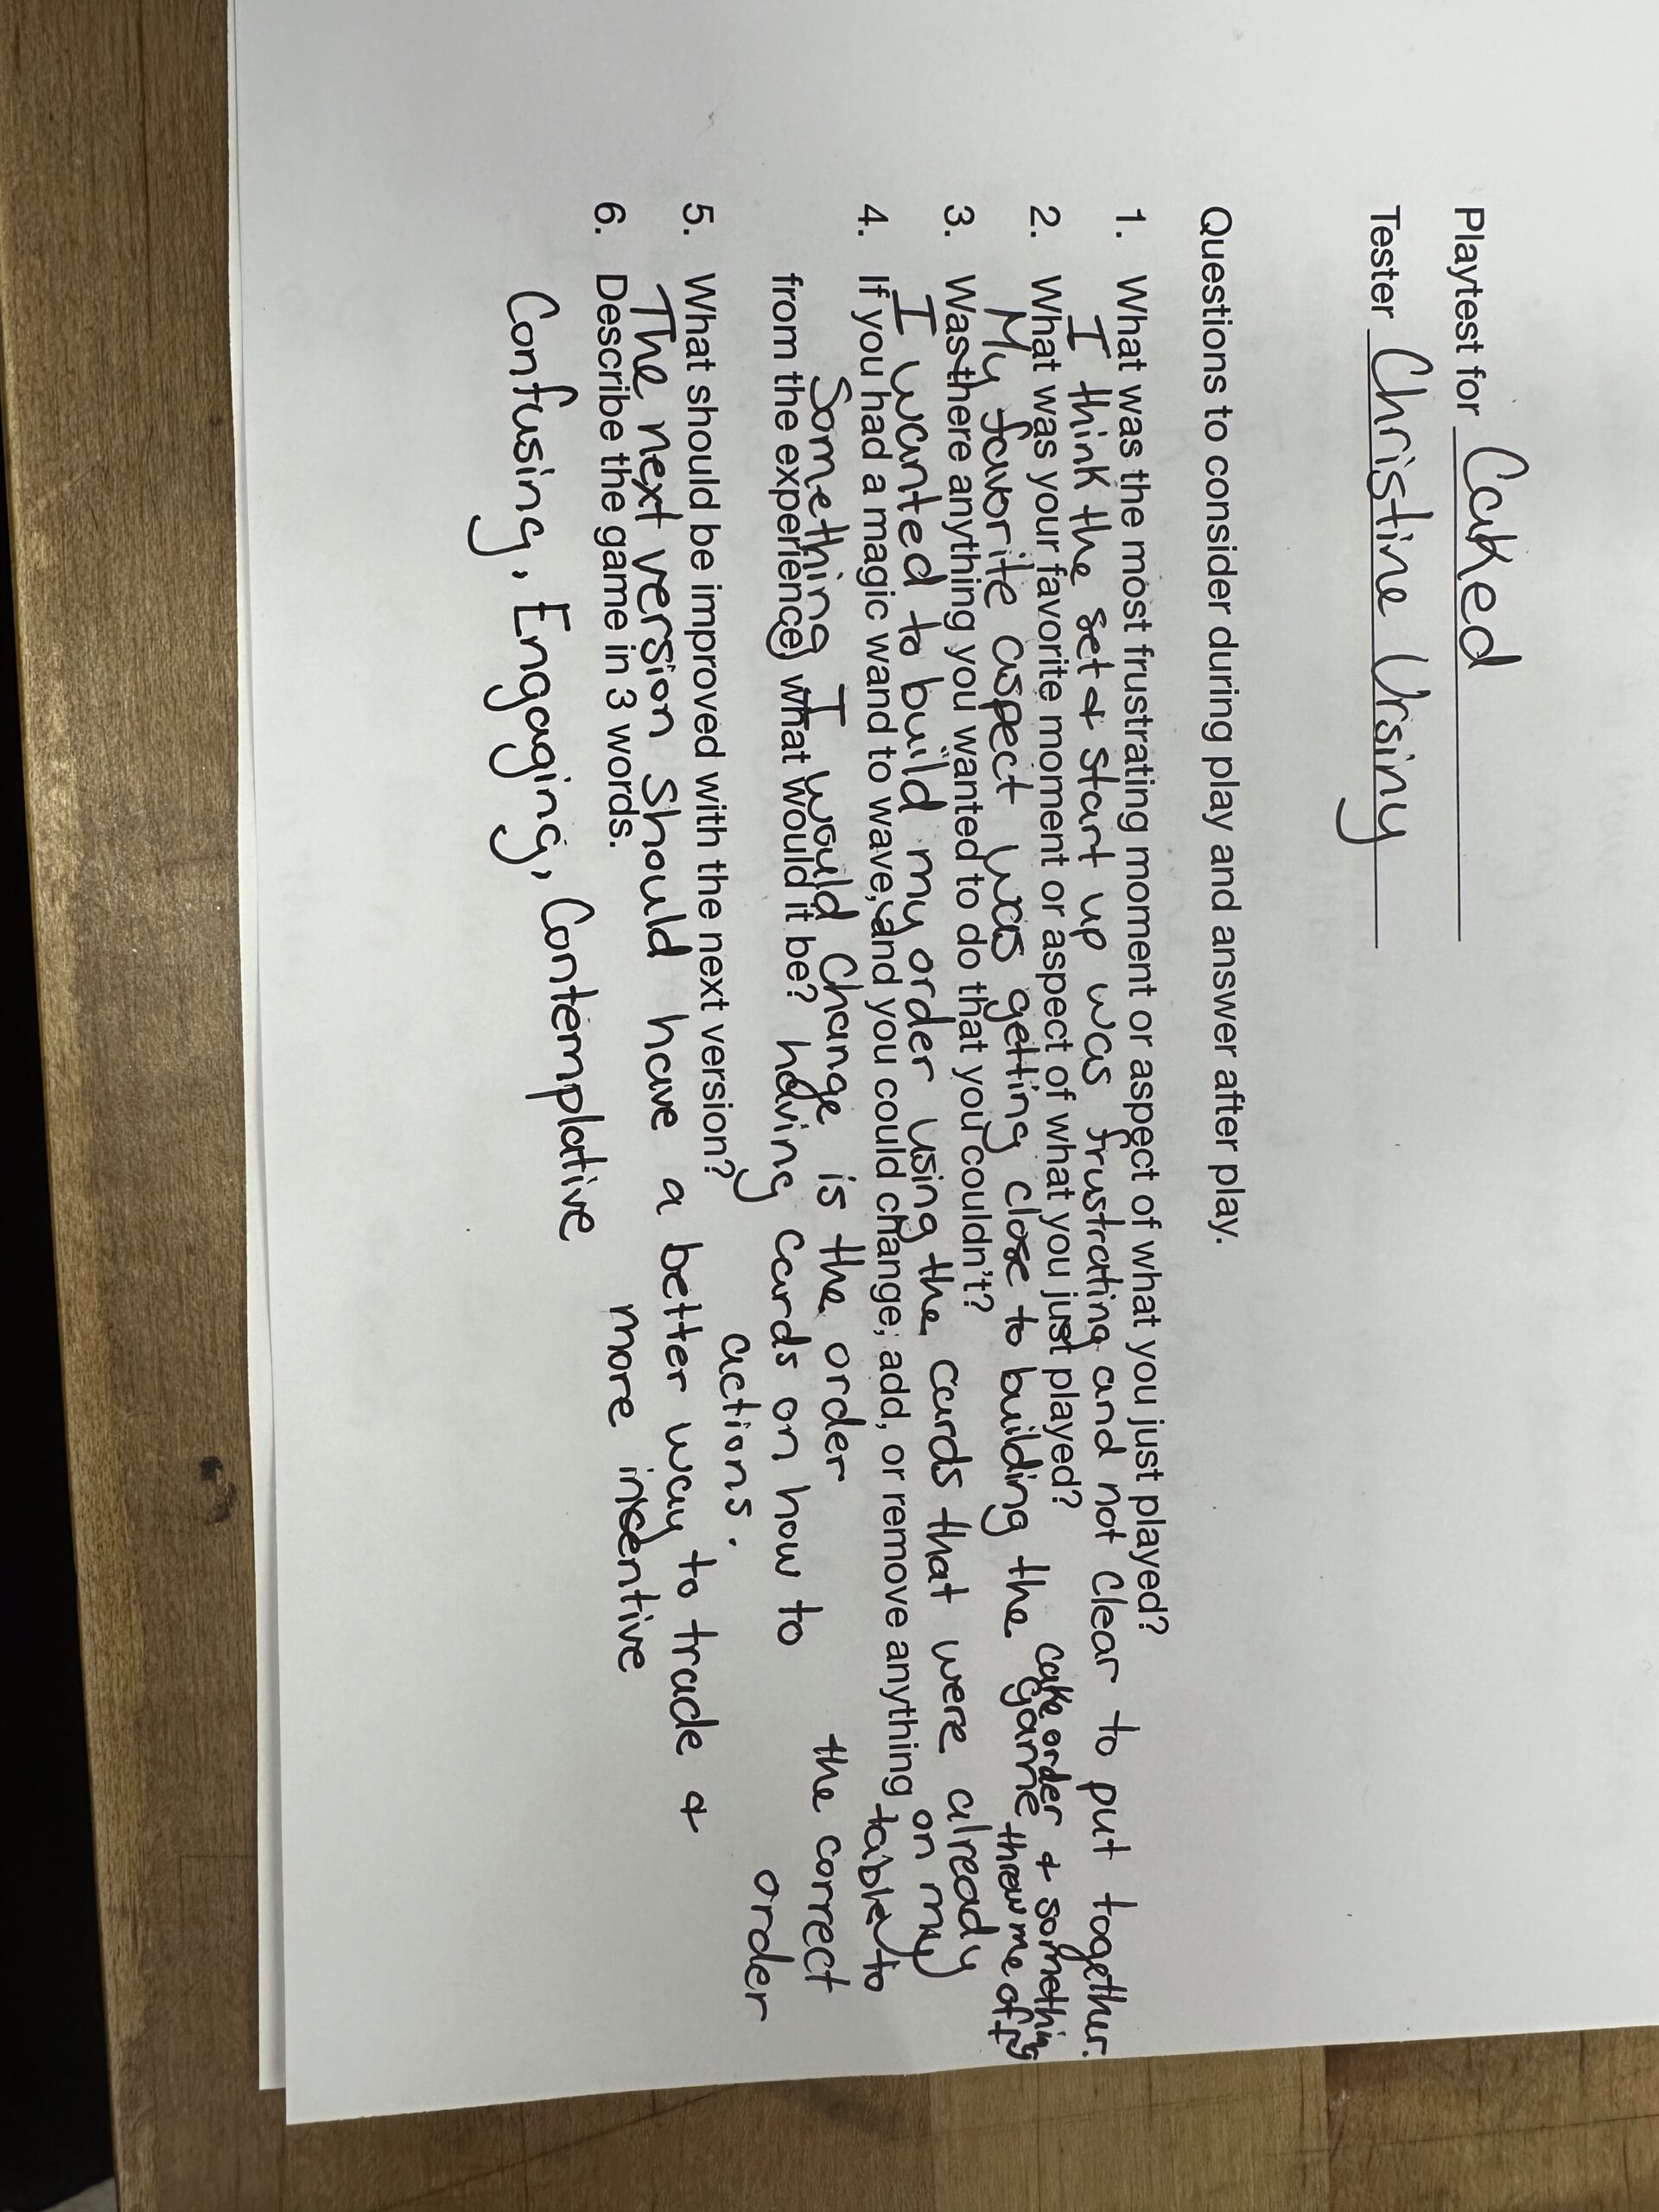 Playtest for Caked
Tester Christine Ursiny
Questions to consider during play and answer after play.
1. What was the most frustrating moment or aspect of what you just played?
I think the set & start up was frustrating and not clear to put together.
2. What was your favorite moment or aspect of what you just played?
My favorite aspect was getting close to building the cake order & something
game threw me off
3. Was there anything you wanted to do that you couldn't?
I wanted to build my order using the cards that were already
on my
table to
4. If you had a magic wand to wave, and you could change, add, or remove anything
Something I would change is the order the correct
from the experience, what would it be? having cards on how to order
actions.
5. What should be improved with the next version?
The next version should have a better way to trade &
more incentive
6. Describe the game in 3 words.
Confusing, Engaging, Contemplative